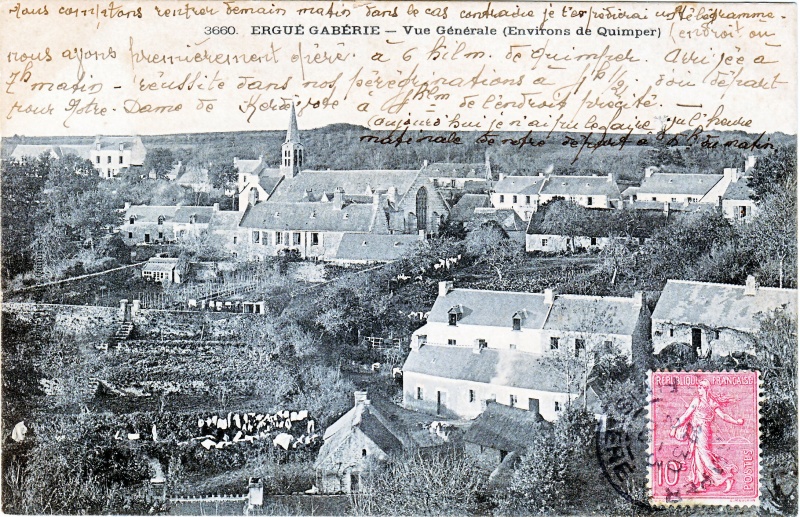 Nous comptons rentrer demain matin dans le cas contraire je t'expédierai un télégramme.
3660. ERGUÉ GABÉRIE — Vue Générale (Environs de Quimper)
(endroit où
nous avons premièrement opéré à 6 kilm. de Quimper. Arrivée à
7h matin - réussite dans nos pérégrinations à 1h 1/2, d'où départ
pour Notre-Dame de Kerdévote à 4 klm de l'endroit précité.
(Aujourd'hui je n'ai pu le faire
l'heure
matinale de notre départ à
du matin
REPUBLIQUE FRANÇAISE
10c
POSTES